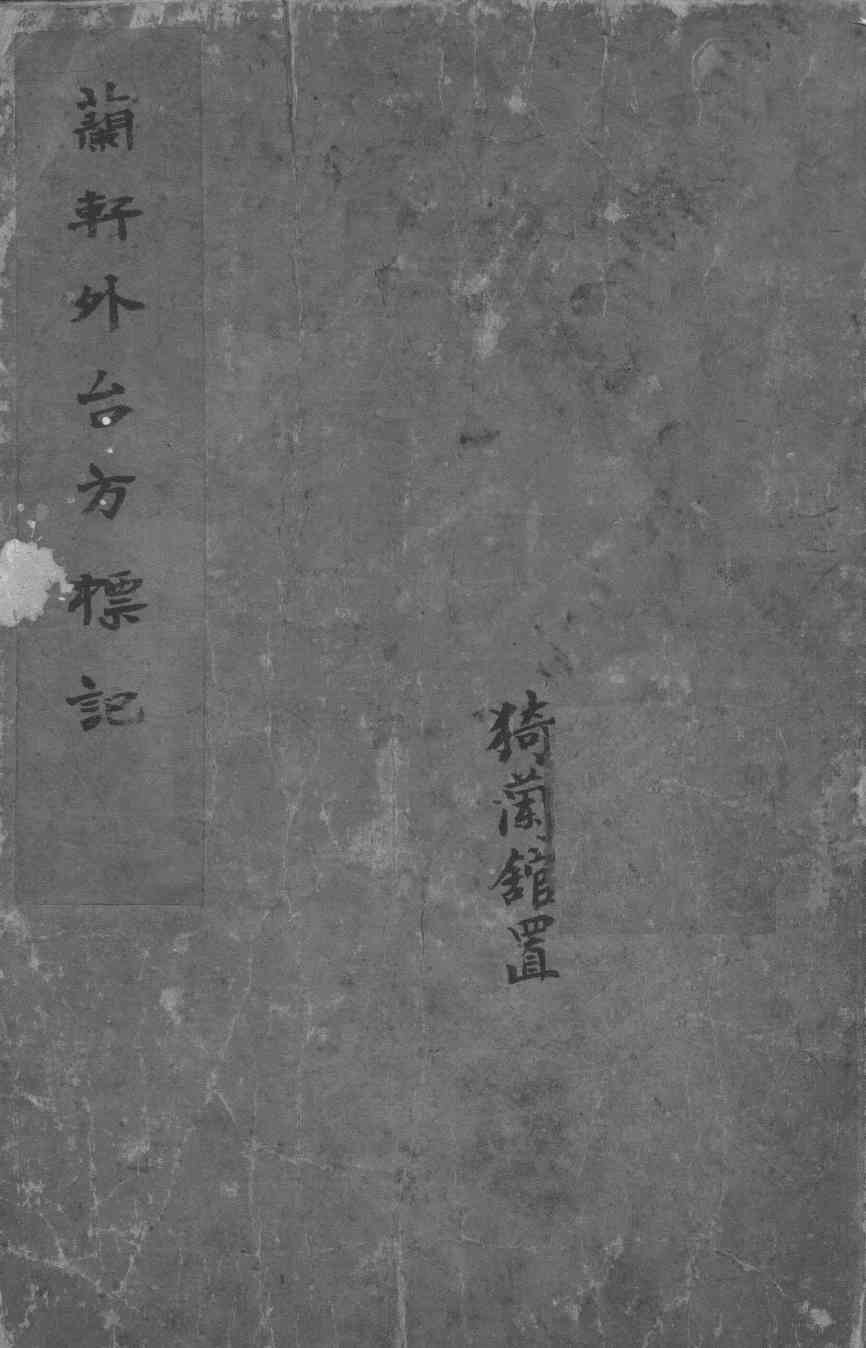 猗蘭舘置
蘭軒外台方標記